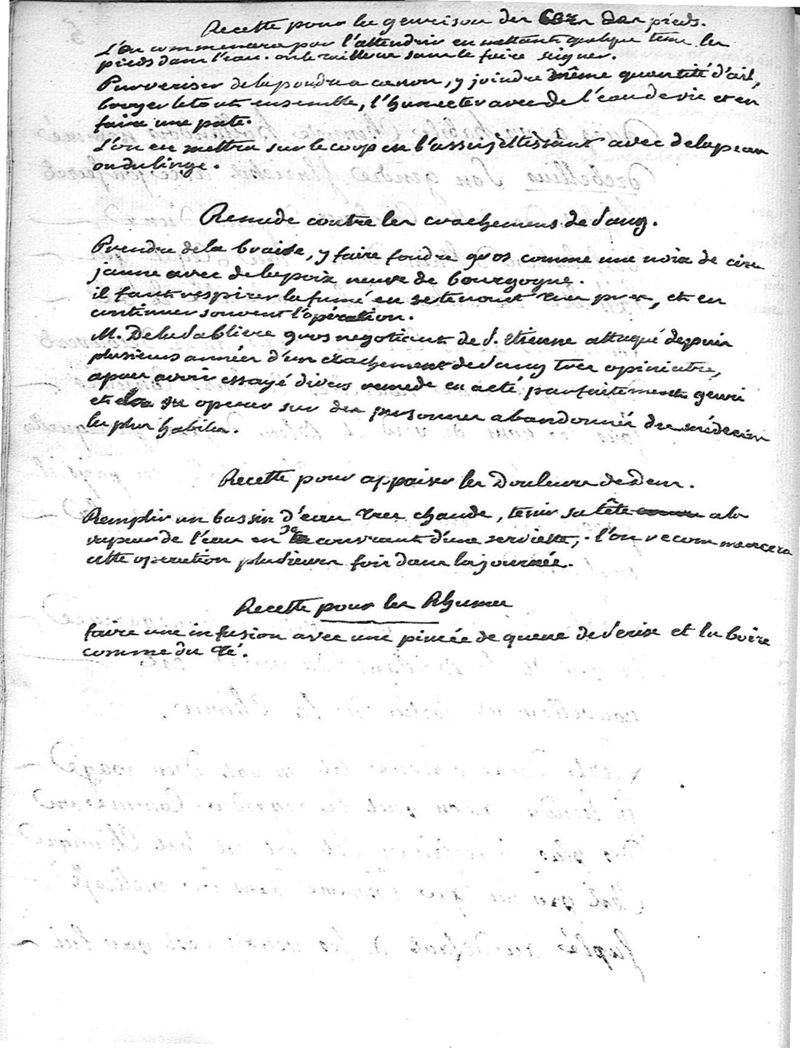 Recette pour la geurison des Corn des pieds.
L'on commencera pour l'attendrir en mettant quelque tems les
pieds dans l'eau. on le taillera sans le faire seigner.
Purveriser de la poudre a canon, y joindre même quantité d'ail,
broyer le tout ensemble, l'humecter avec de l'eau de vie et en
faire une pate.
L'on en mettra sur le coop en l'assujettissant avec de la peau
ou du linge.
Remede contre les crachemens de sang.
Prendre de la braise, y faire foudre gros comme une noix de cire
jaune avec de la poix neuve de bourgogne.
il faut respirer la fumé en se tenant tres pres, et en
continuer souvent l'opération.
M. De la Sabliere gros negotiant de S. Etienne attaqué depuis
plusieurs année d'un crachement de sang tres opiniatre,
apres avoir essayé divers remede en a eté parfaitement geuri
et operer sur des personnes abandonné des médecins
les plus habiles.
Recette pour appaiser les Douleurs de Dens.
Remplir un bassin d'eau tres chaude, tenir sa tête a la
vapeur de l'eau en se couvrant d'une serviette, l'on recommencera
cette operation plusieurs fois dans la journée.
Recette pour les Rhumes
faire une infusion avec une pincée de queue de Serise et la boire
comme du té.